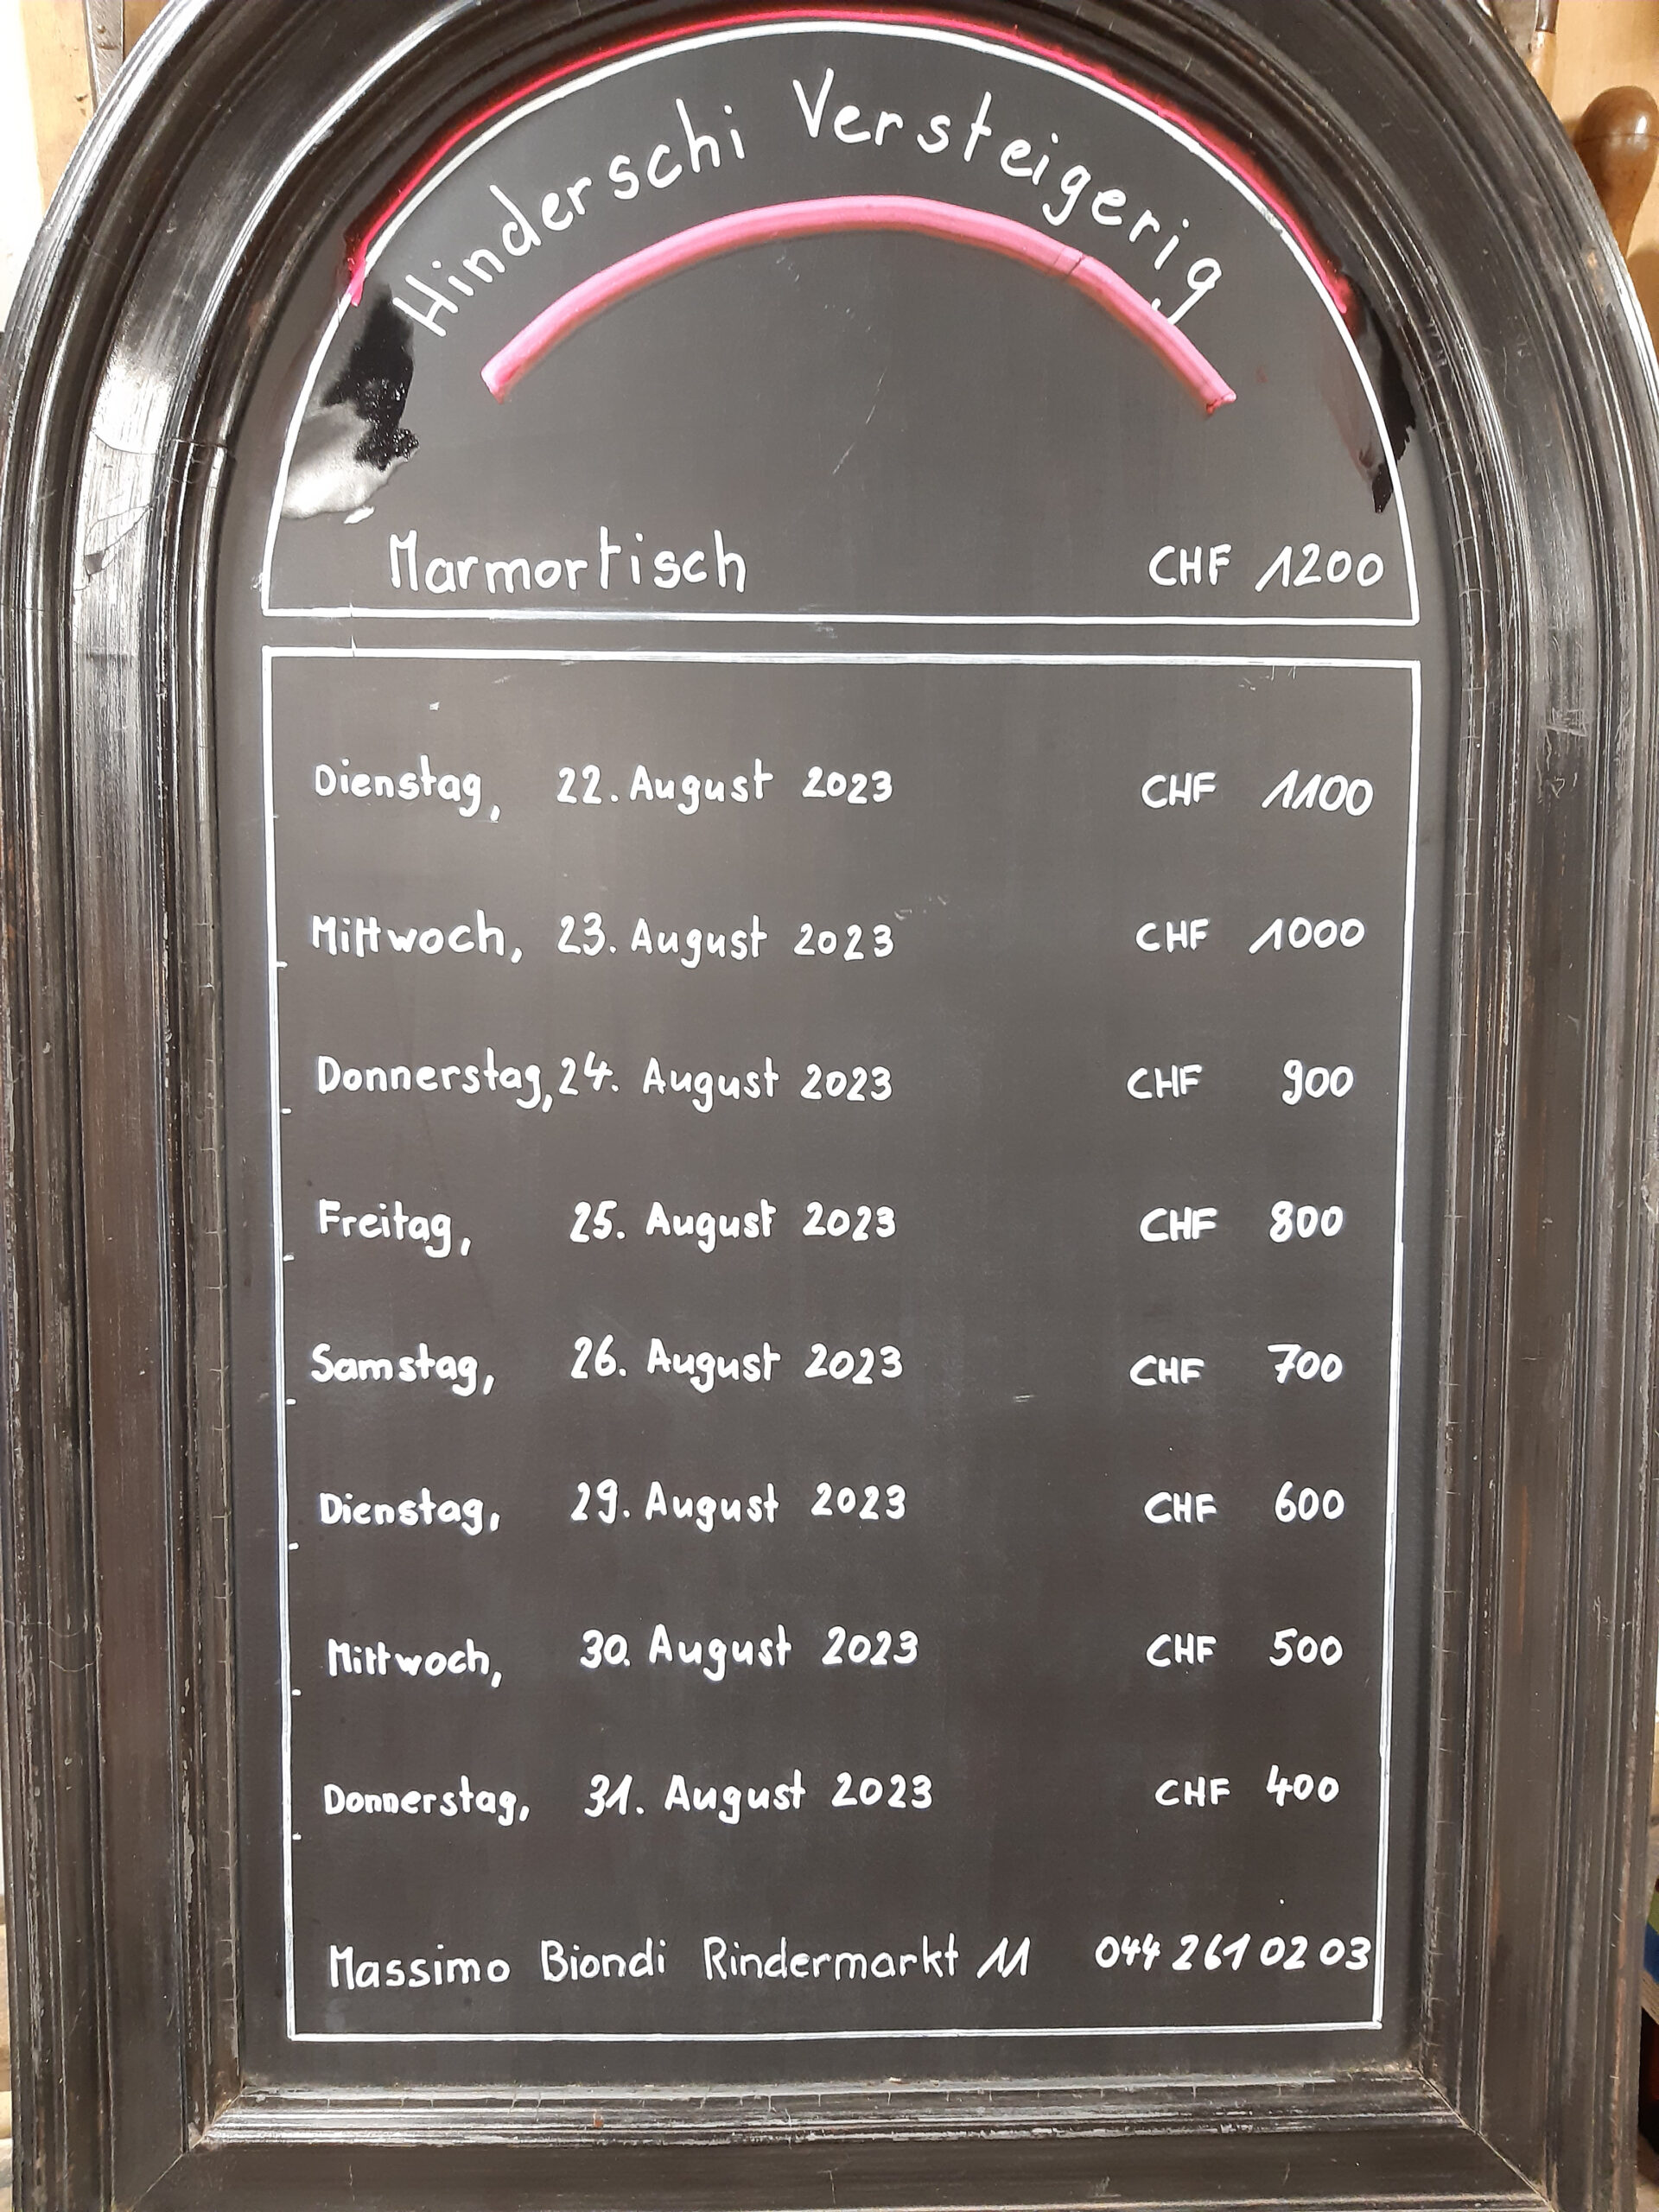 Hinderschi Versteigerig
Marmortisch CHF 1200
Dienstag, 22. August 2023 CHF 1100
Mittwoch, 23. August 2023 CHF 1000
Donnerstag, 24. August 2023 CHF 900
Freitag, 25. August 2023 CHF 800
Samstag, 26. August 2023 CHF 700
Dienstag, 29. August 2023 CHF 600
Mittwoch, 30. August 2023 CHF 500
Donnerstag, 31. August 2023 CHF 400
Massimo Biondi Rindermarkt 11 044 261 02 03